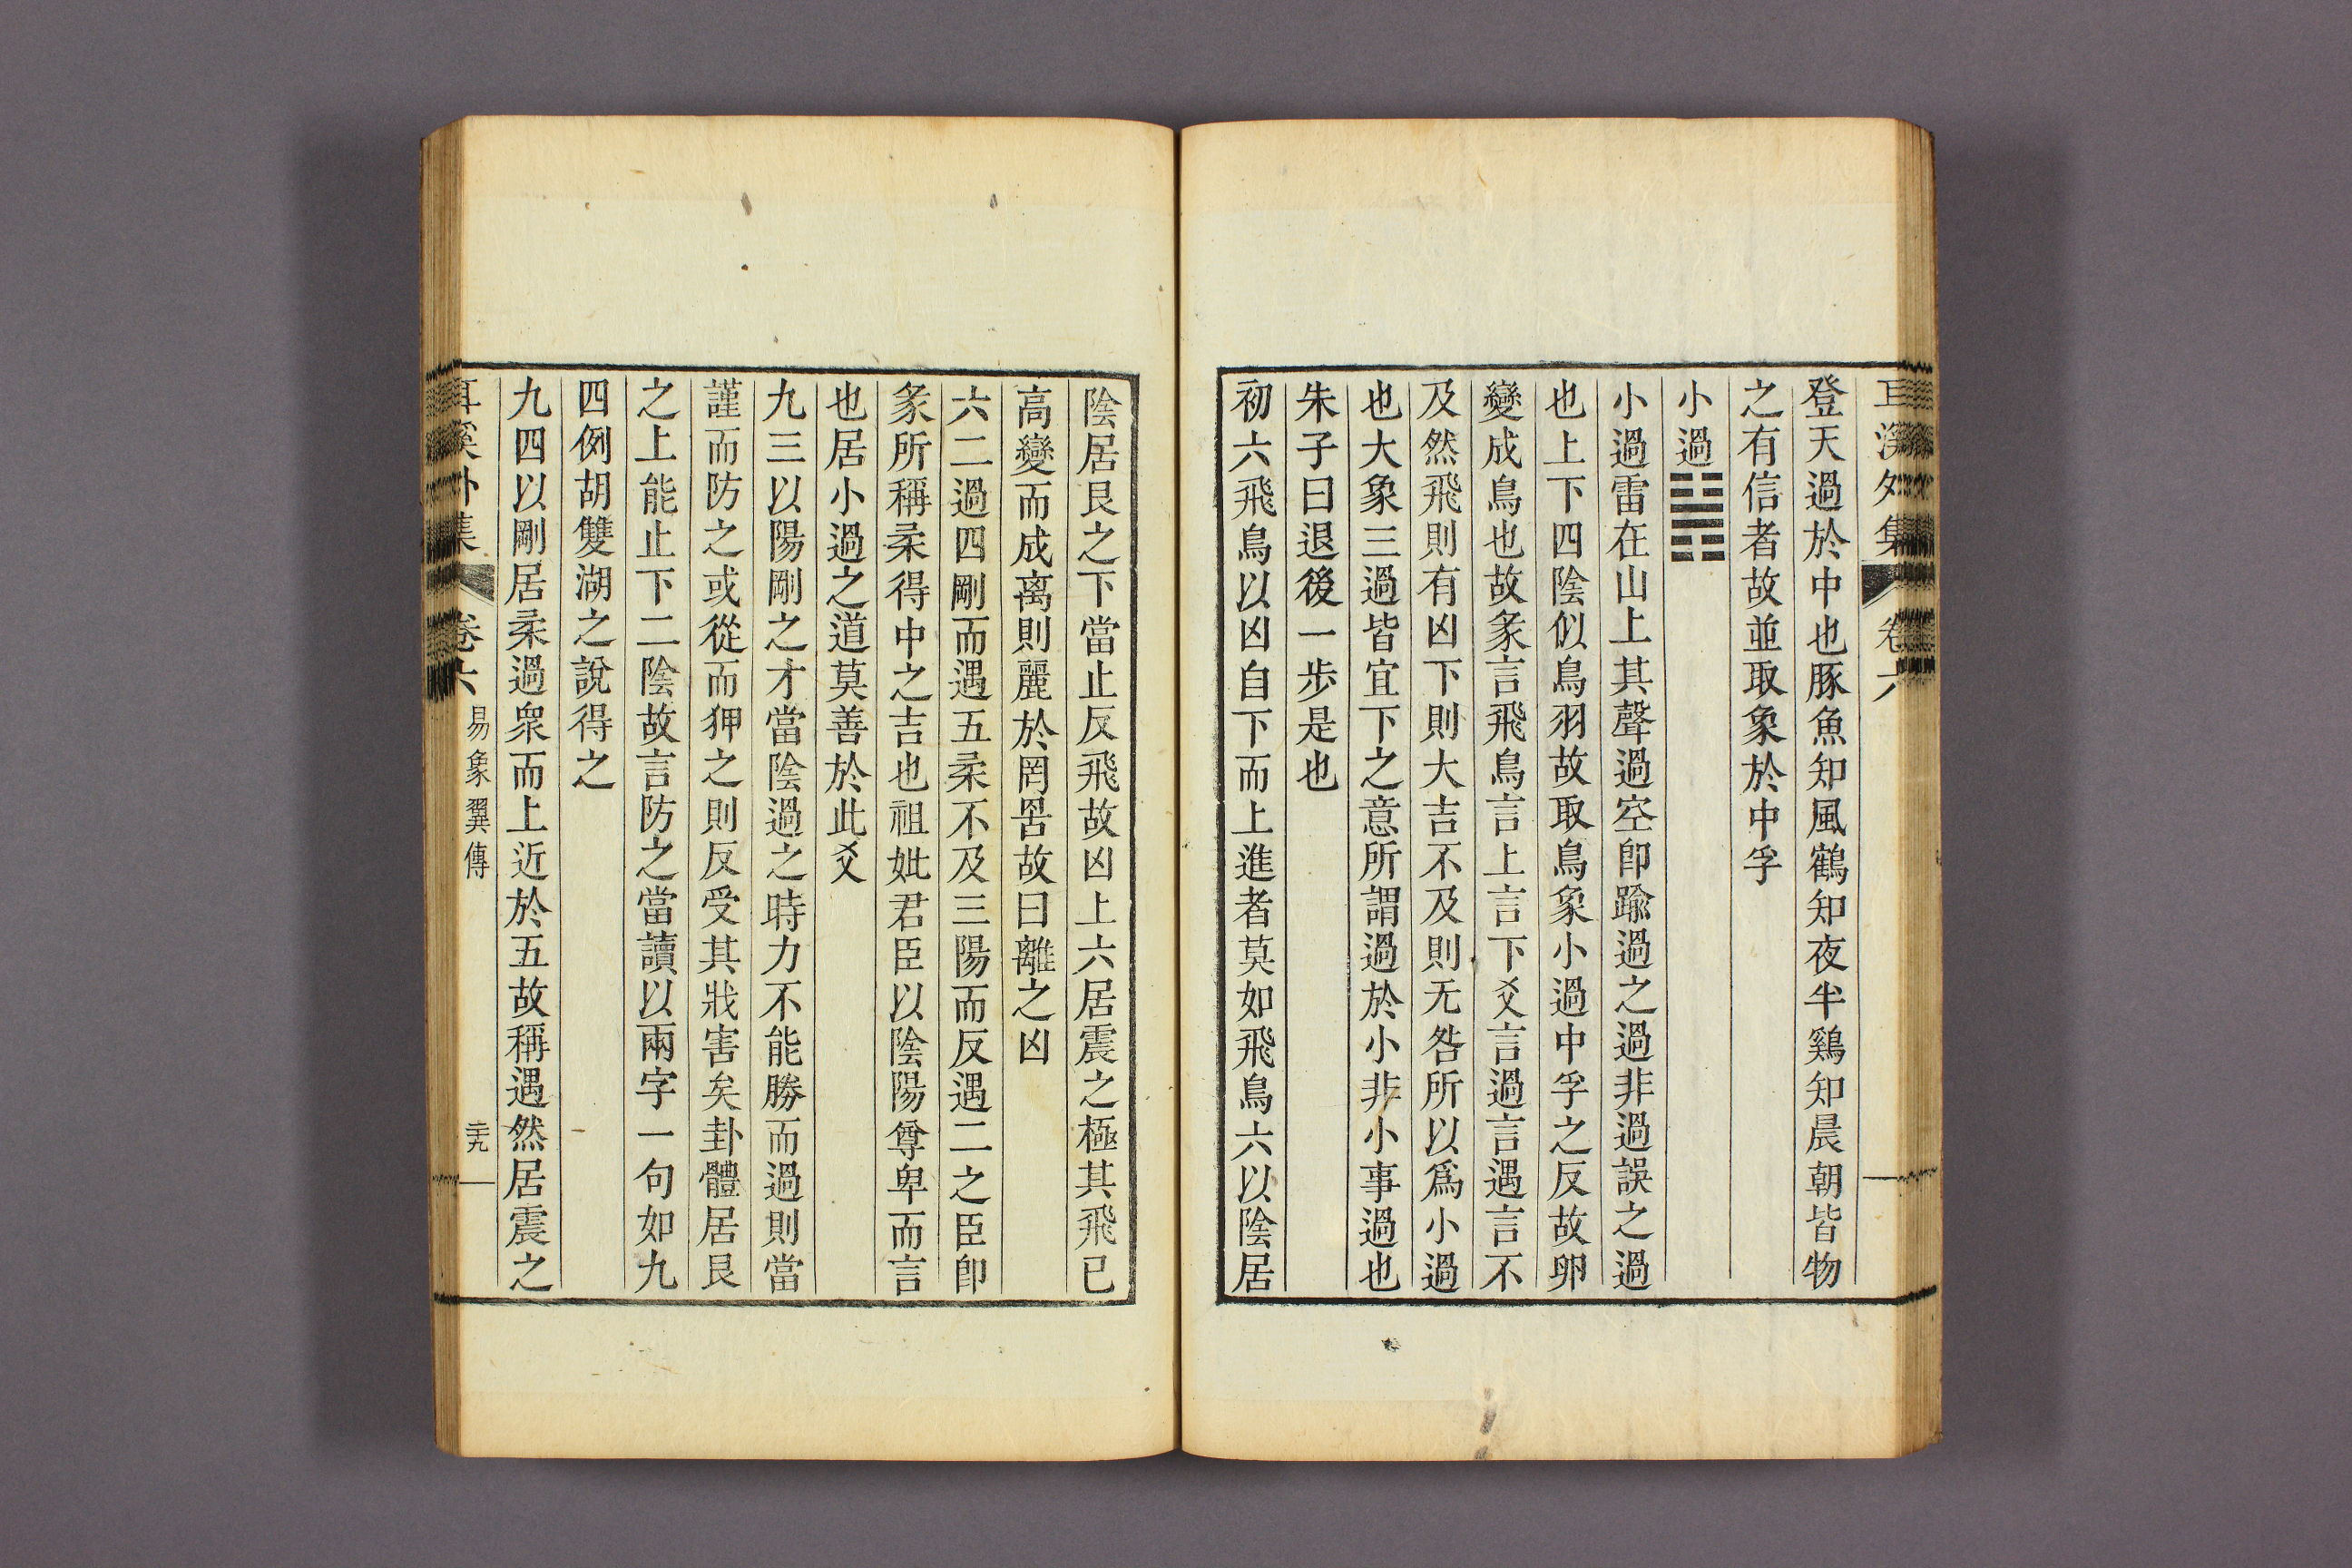 耳溪外集 卷六
登天過於中也豚魚知風鶴知夜半鷄知晨朝皆物
之有信者故並取象於中孚
小過䷽
小過雷在山上其聲過空卽踰過之過非過誤之過
也上下四陰似鳥羽故取鳥象小過中孚之反故卵
變成鳥也故彖言飛鳥言上言下爻言過言遇言不
及然飛則有凶下則大吉不及則无咎所以爲小過
也大象三過皆宜下之意所謂過於小非小事過也
朱子曰退後一步是也
初六飛鳥以凶自下而上進者莫如飛鳥六以陰居
陰居艮之下當止反飛故凶上六居震之極其飛已
高變而成离則麗於罔罟故曰離之凶
六二過四剛而遇五柔不及三陽而反遇二之臣卽
彖所稱柔得中之吉也祖妣君臣以陰陽尊卑而言
也居小過之道莫善於此爻
九三以陽剛之才當陰過之時力不能勝而過則當
謹而防之或從而狎之則反受其戕害矣卦體居艮
之上能止下二陰故言防之當讀以兩字一句如九
四例胡雙湖之說得之
九四以剛居柔過衆而上近於五故稱遇然居震之
耳溪外集 卷六 易象翼傳 三十九